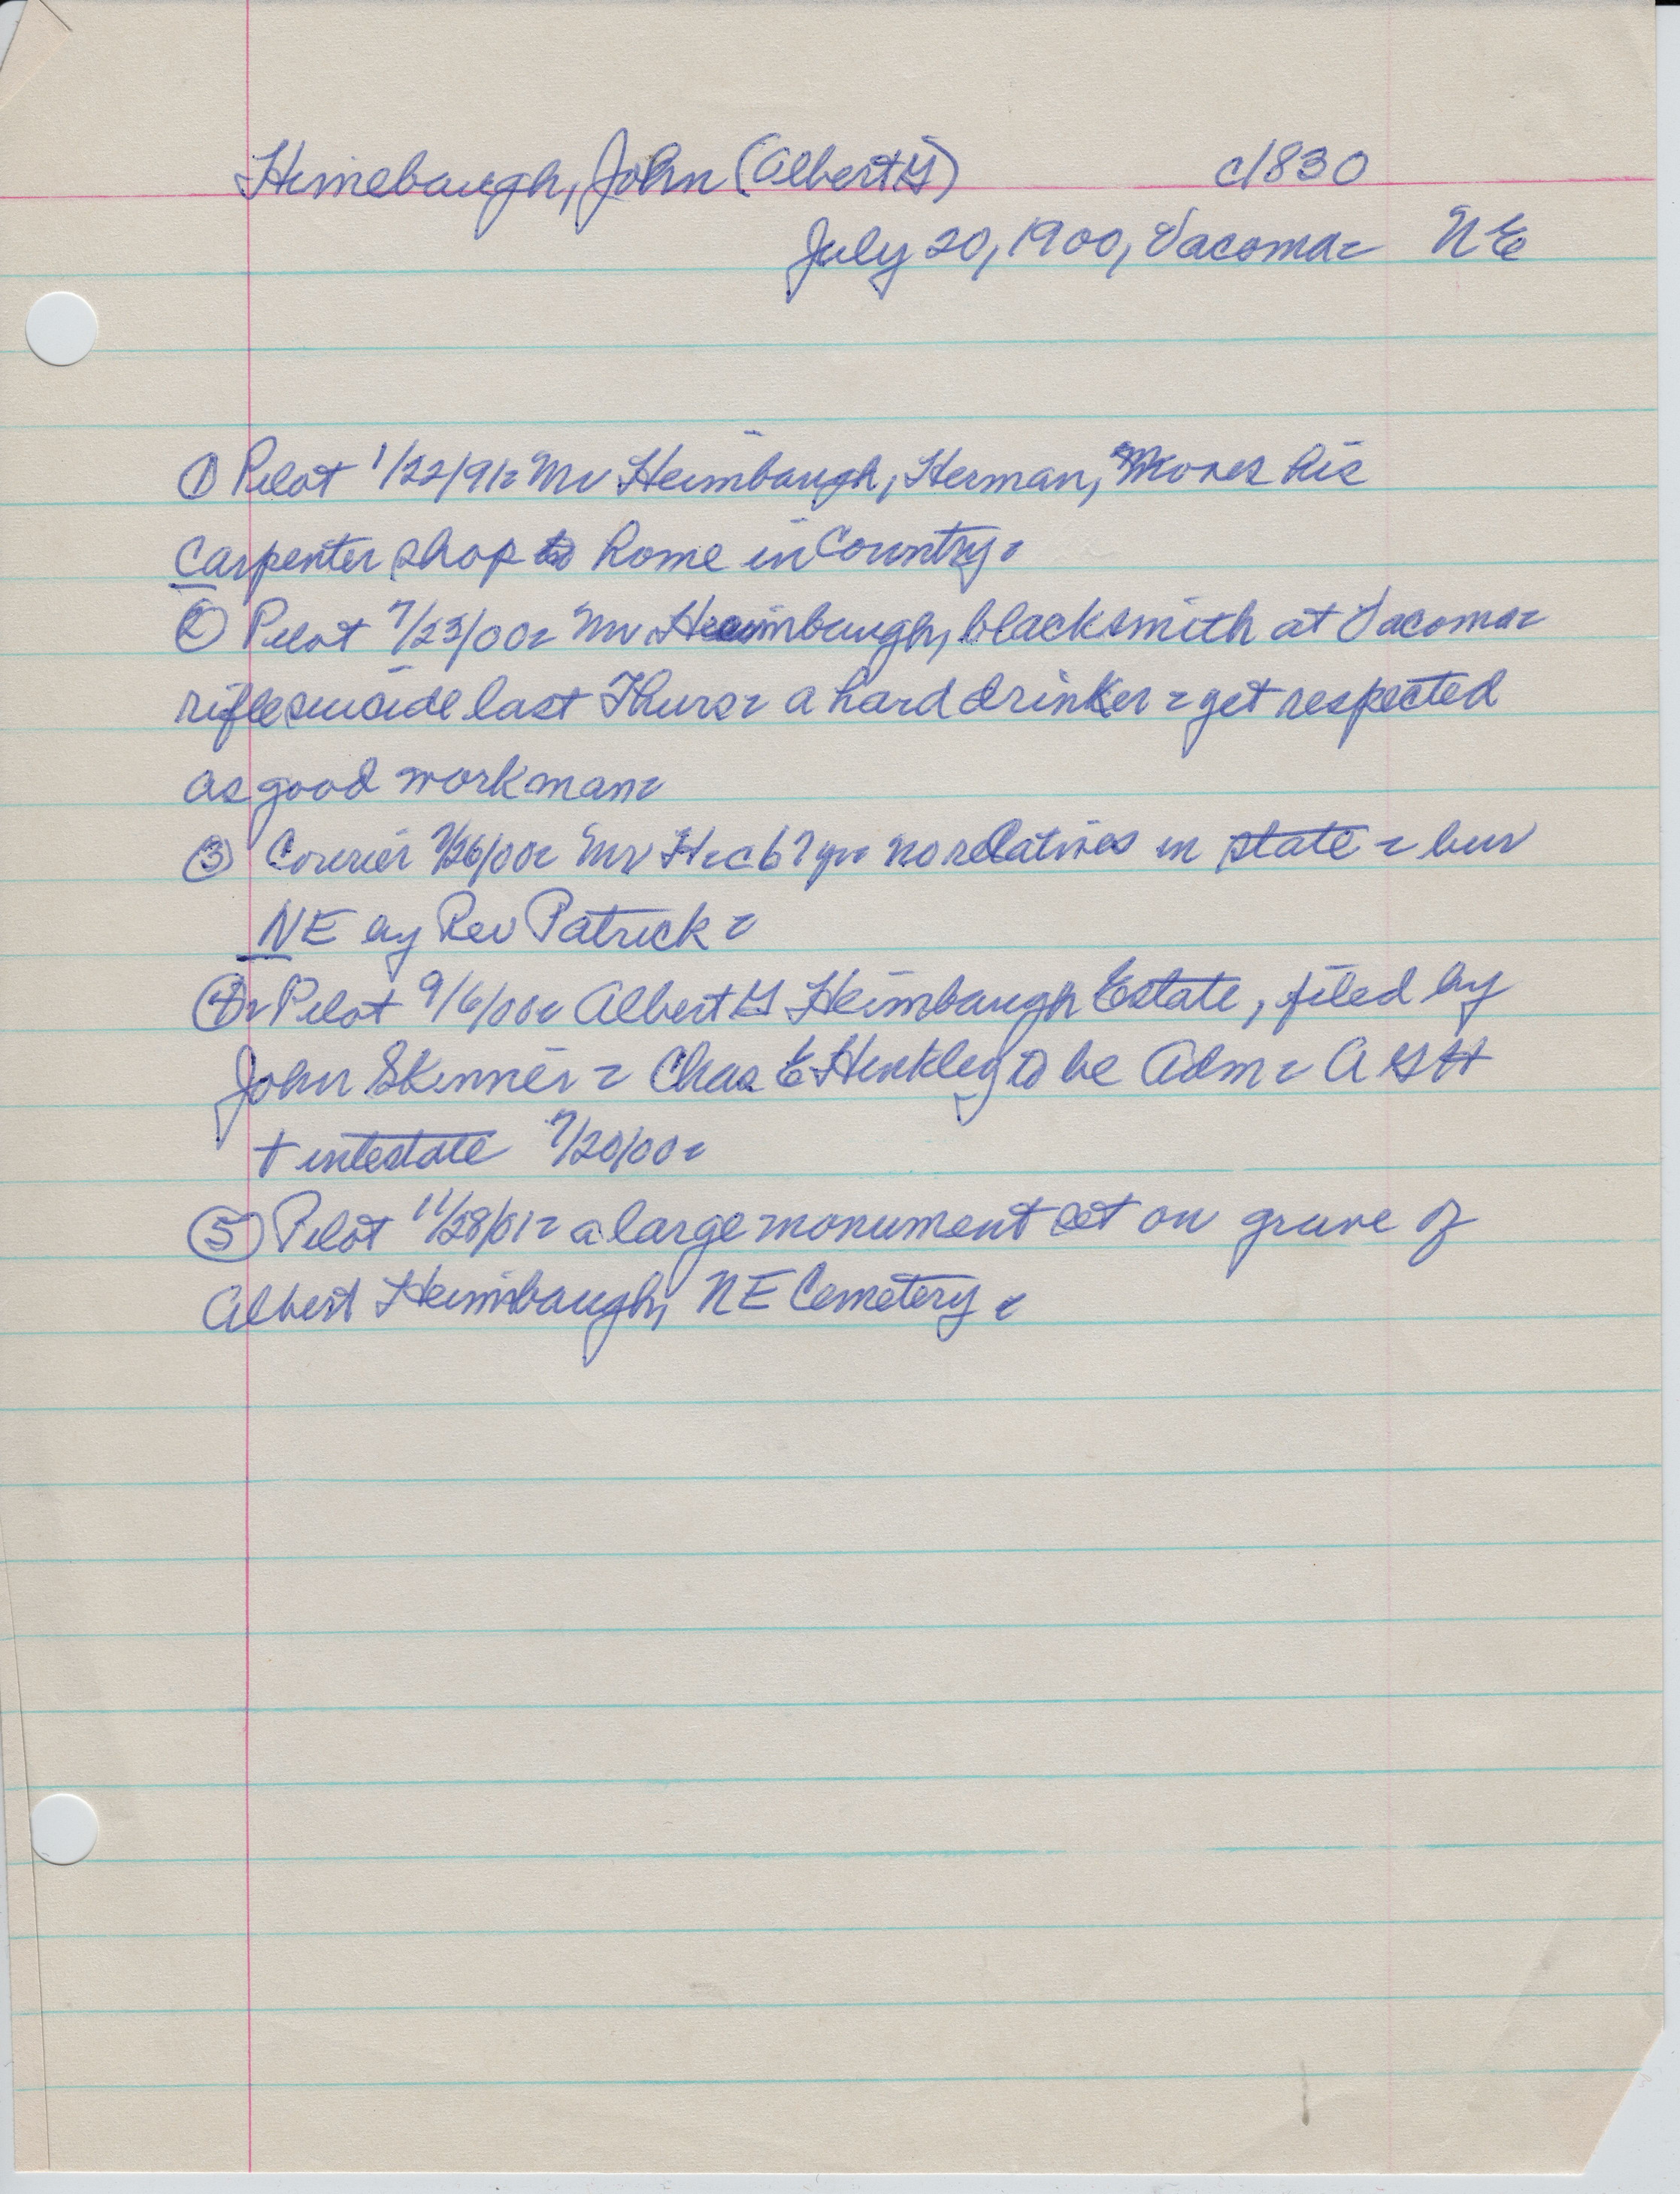 Himebaugh, John (Albert G) c1830
July 20, 1900, Vacoma- NE
① Pilot 1/22/91- Mr Heimbaugh, Herman, Moves his
Carpenter shop to home in Country.
② Pilot 7/23/00- Mr Heimbaugh, blacksmith at Vacoma-
rifle suicide last Thurs- a hard drinker- yet respected
as good workman-
③ Courier 7/26/00- Mr H no relatives in state- bur
NE by Rev Patrick-
④- Pilot 9/6/00- Albert G Heimbaugh Estate, filed by
John Skinner- Chas E Hinkley to be Adm- A G H
+ intestate 7/20/00-
⑤ Pilot 11/28/01- a large monument set on grave of
Albert Heimbaugh, NE Cemetery-